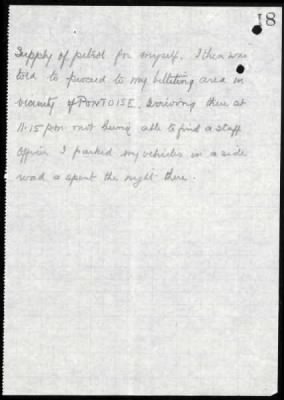 18
Supply of petrol for myself. I then was
told to proceed to my billeting area in
vicinity of PONTOISE. Arriving there at
11.15 pm. not being able to find a staff
officer I parked my vehicles in a side
road & spent the night there.